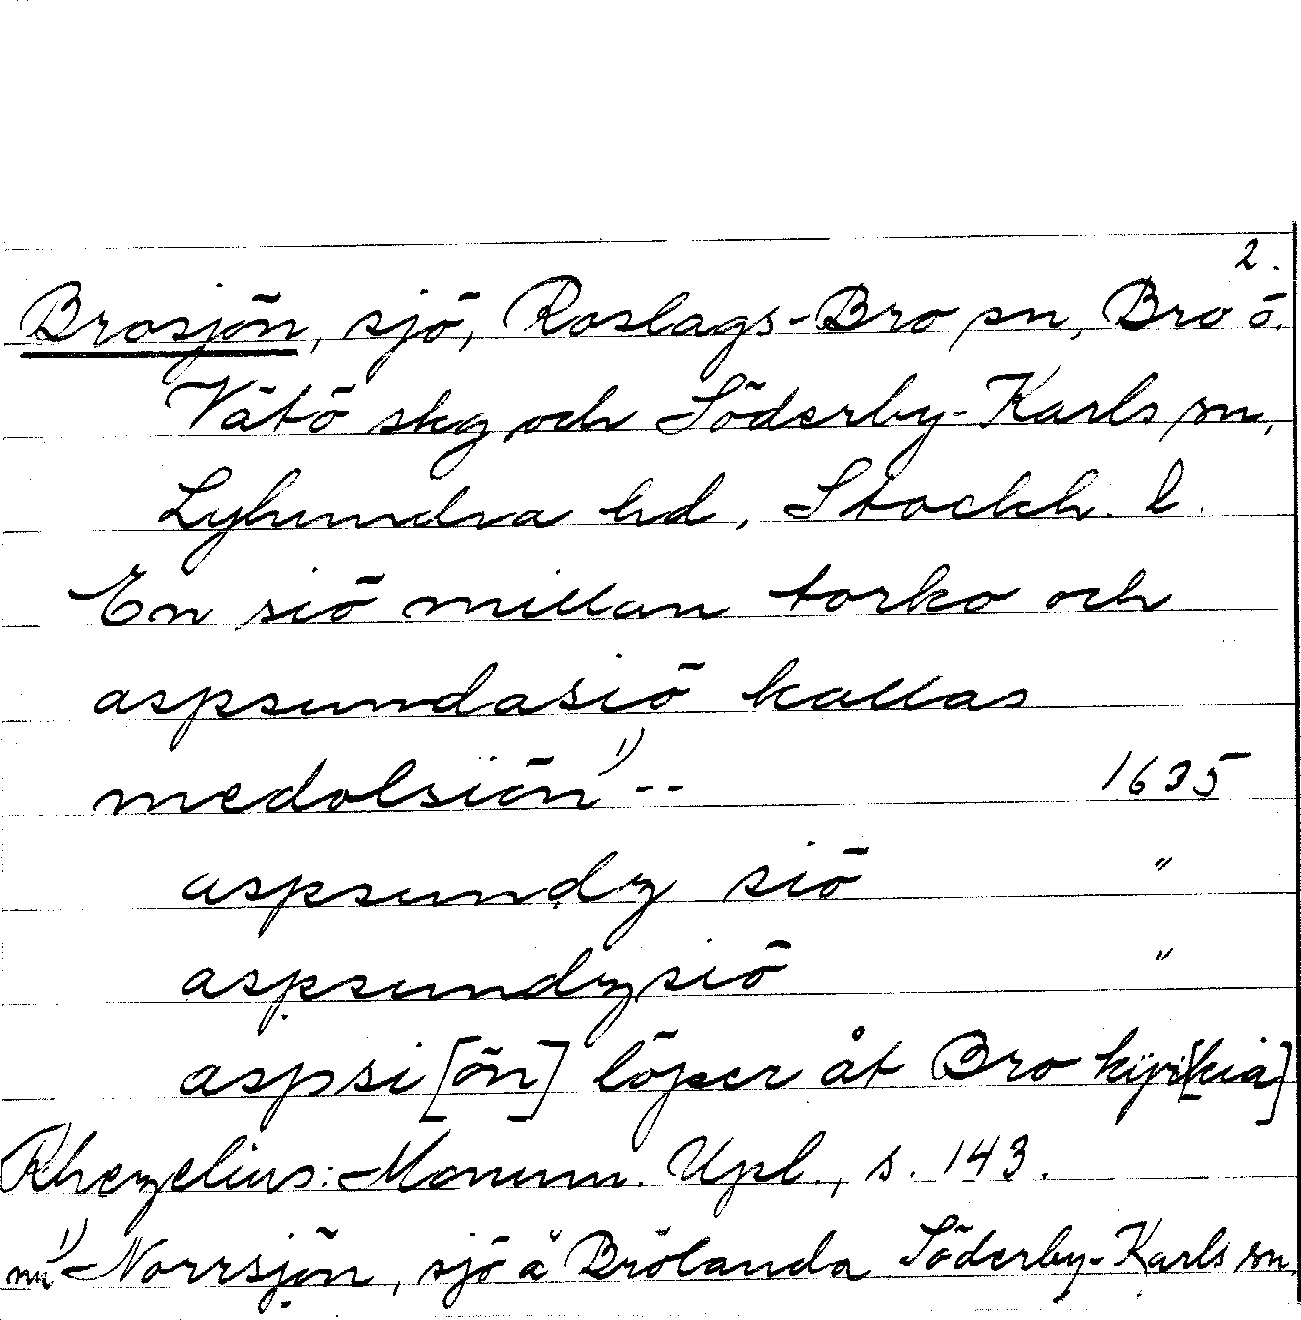 2.
Brosjön, sjö, Roslags-Bro sn, Bro ö.
Vätö skg och Söderby-Karls sn,
Lyhundra hd, Stockh. l.
En siö millan torko och
aspsundasiö kallas
medolsiön¹⁾ -- 1635
aspsundz siö "
aspsundzsiö "
aspsi[ön] löper åt Bro kÿr[kia]
Rhezelius: Monum. Upl., s. 143.
¹⁾ nu Norrsjön, sjö å Brölanda Söderby-Karls sn,